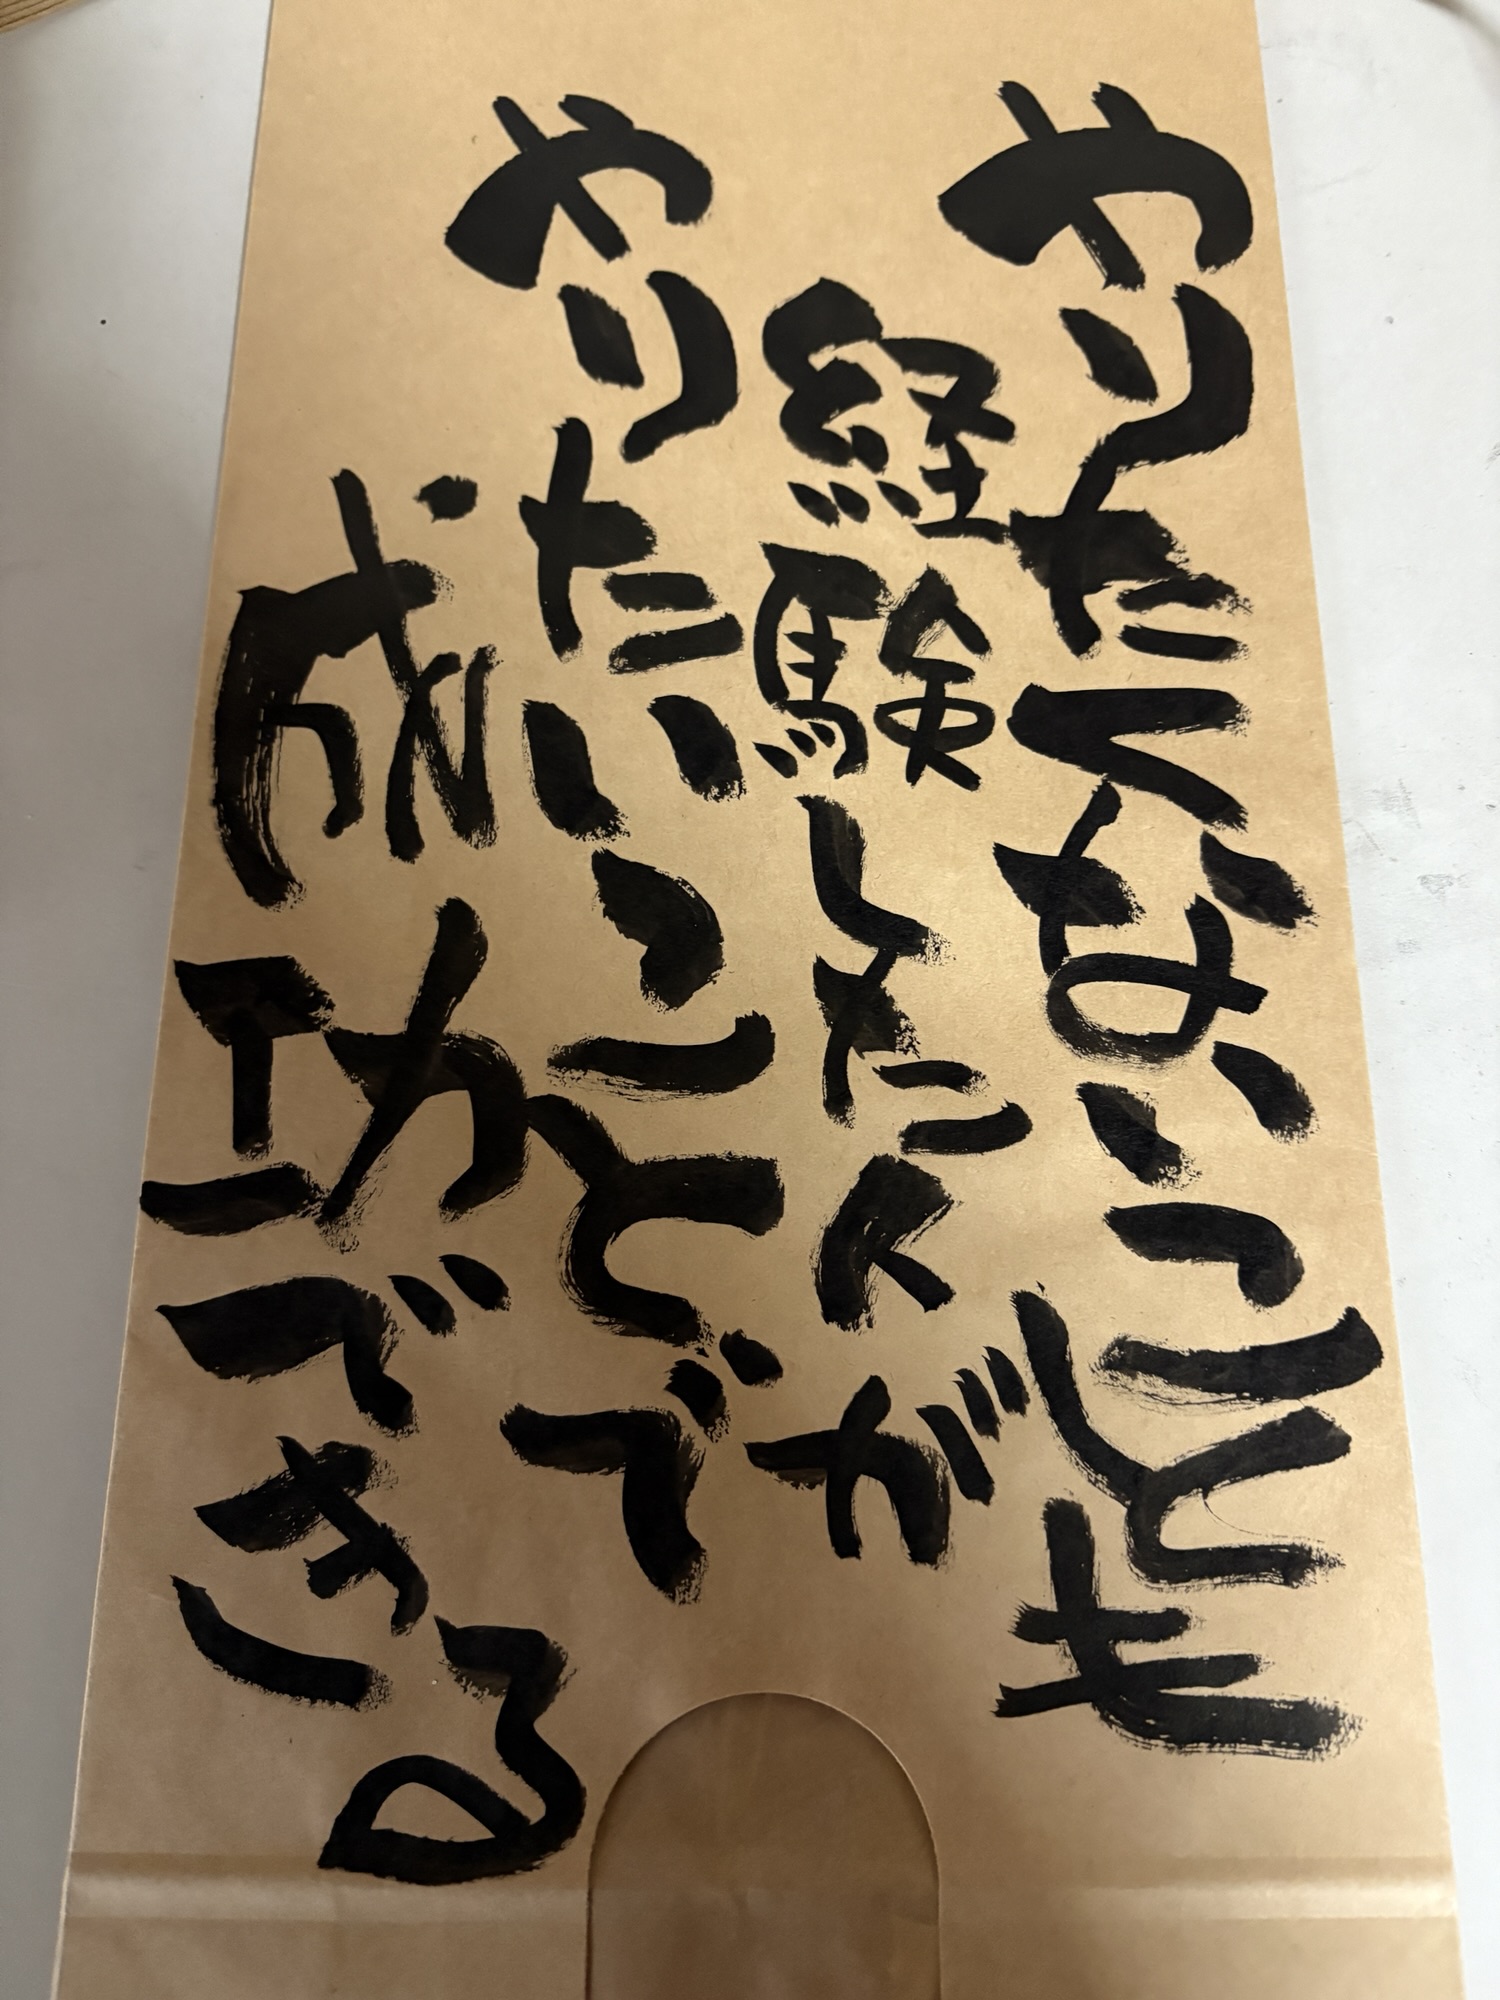 やりたくないことも
経験した人が
やりたいことで
成功できる